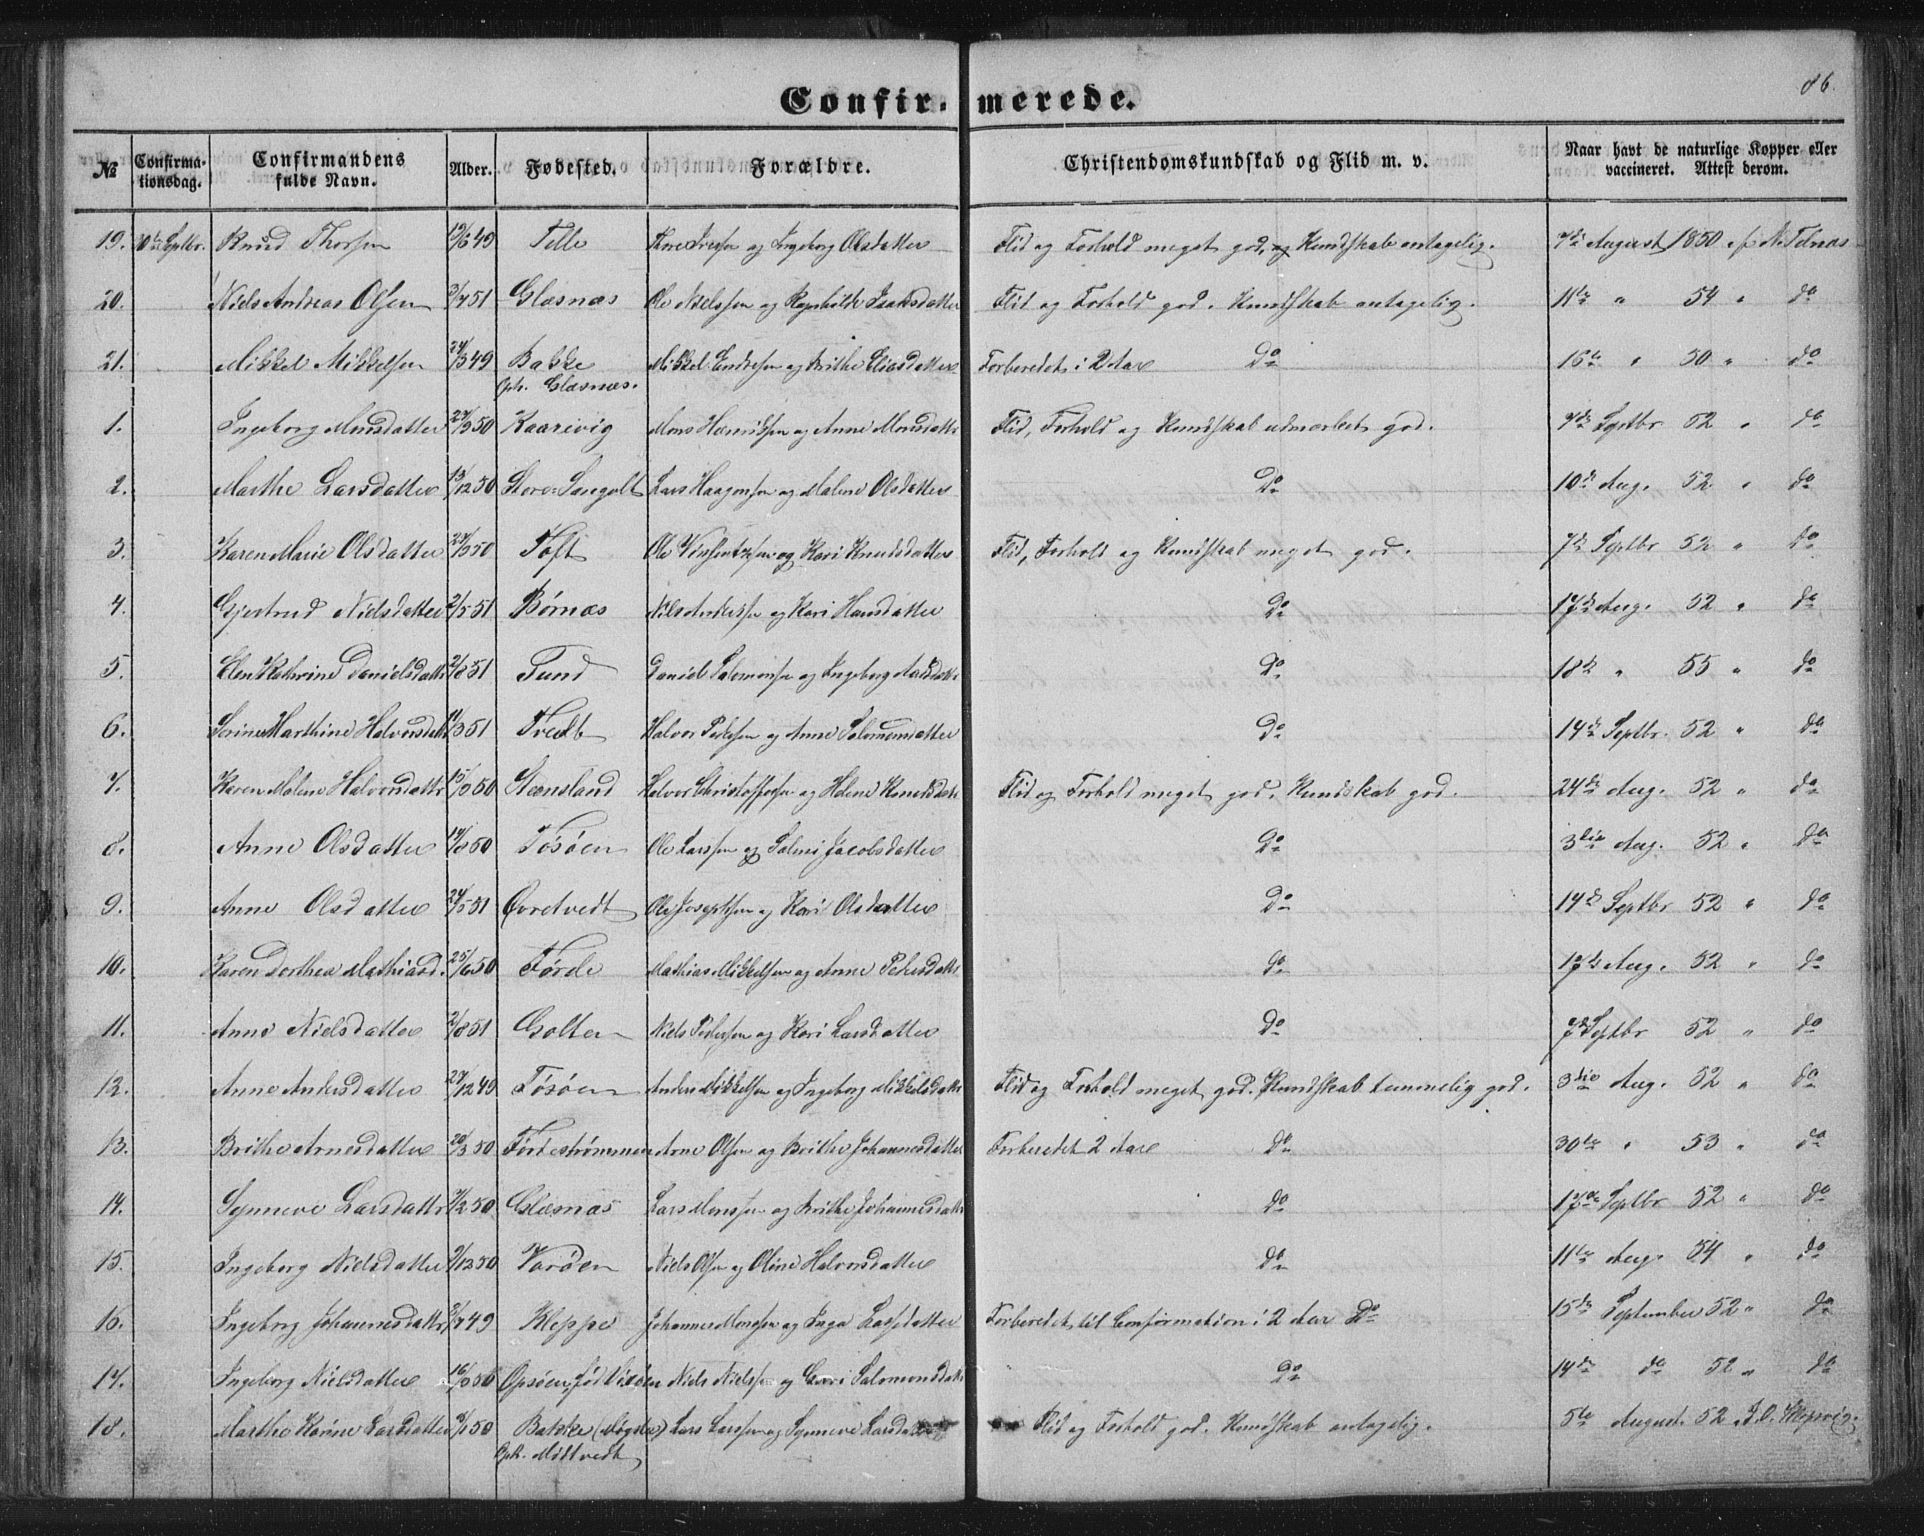 86.
Confirmerede.
№ Confirmationsdag. Confirmandens fulde Navn. Alder. Fødested. Forældre. Christendomskundskab og Flid m. v. Naar havt de naturlige Kopper eller vaccineret. Attest derom.
19. Septbr. Knud Thorsen Telle og Ingeborg Olsdatter Flid og Forhold meget god, og Kundskab antagelig. August 1850 af N. Tdnæs
20. Niels Andreas Olsen 51 Glæsnæs Ole Nielssen og Isaksdatter Flid og Forhold god. Kundskab antagelig. 11te " 54 " do
21. Mikkel Mikkelsen 49 Bakke Mikkel Endresen og Brithe Eliasdatter Forberedet i 2 Aar Do 16te " 50 " do
Oph. Glæsnæs.
1. Ingeborg Monsdatter 50 Kaarevig Mons og Anne Monsdattr Flid, Forhold og Kundskab udmærket god. Septbr 52 " do
2. Marthe Larsdatter 13/12 50 Store-Sangolt Lars Haagensen og Malene Olsdatter Do 10de Aug. 52 " do
3. Karen Marie Olsdatter 50 Toft Ole Vinsentzsen og Kari Knudsdatter Flid, Forhold og Kundskab meget god. 7de Septbr 52 " do
4. Gjertrud Nielsdatter 51 Børnæs Nils Anderssen og Kari Hansdatter Do 17de Aug. 52 " do
5. Elen Kathrine Danielsdattr 51 Tund Daniel Salomonsen og Ingeborg Do 18de " 55 " do
6. Serine Marthine Halvorsdattr 51 Tvedt Halvor Pederssen og Anne Salomonsdatter Do 14de Septbr. 52 " do
7. Karen Malene Halvorsdattr 50 Steensland Halvor Christoffersen og Helene Flid og Forhold meget god. Kundskab god. 24de Aug. 52 " do
8. Anne Olsdatter 50 Tøsøen Ole Larssen og Salmi Jacobsdatter Do 3die Aug. 52 " do
9. Anne Olsdatter 24/5 51 Qvretvedt Ole Josephsen og Kari Olsdatter Do 14de Septbr 52 " do
10. Karen Dorthea Mathiasd. 25/6 50 Førde Mathias Mikkelsen og Anne Pedersdattr do 17de Aug. 52 " do
11. Anne Nielsdatter 51 Golten Niels Pederssen og Kari Larsdatter Do 7de Septbr 52 " do
12. Anne Andersdatter 12 49 Tøsøen Anders Mikkelsen og Ingeborg Mikkelsdattr Flid og Forhold meget god. Kundskab temmelig god. 3die Aug. 52 " do
13. Brithe Arnesdatter 50 Førdestrømmen Arne Olsen og Brithe Johannesdatter Forberedet 2 Aar do 30te " 53 " do
14. Synneve Larsdattr 50 Glæsnæs Lars Monssen og Brithe Johannesdattr do 17de Septbr 52 " do
15. Ingeborg Nielsdatter 12 50 Varøen Niels Olsen og Oline Halvorsdatter do 11te Aug. 54 " do
16. Ingeborg Johannesdattr 49 Kleppe Johannes Monssen og Inga Larsdatter Forberedet til Confirmation i 2 Aar Do 15de September 52 " do
17. Ingeborg Nielsdatter 50 Opsøen, Niels Nielssen og Salomonsdattr Do 14de do 52 " do
18. Marthe Karine Larsdatter 50 Bakke (Møgster) Lars Larssen og Synneve Larsdatter Flid og Forhold god. Kundskab antagelig. 5te August 52
Oph. Midtvedt